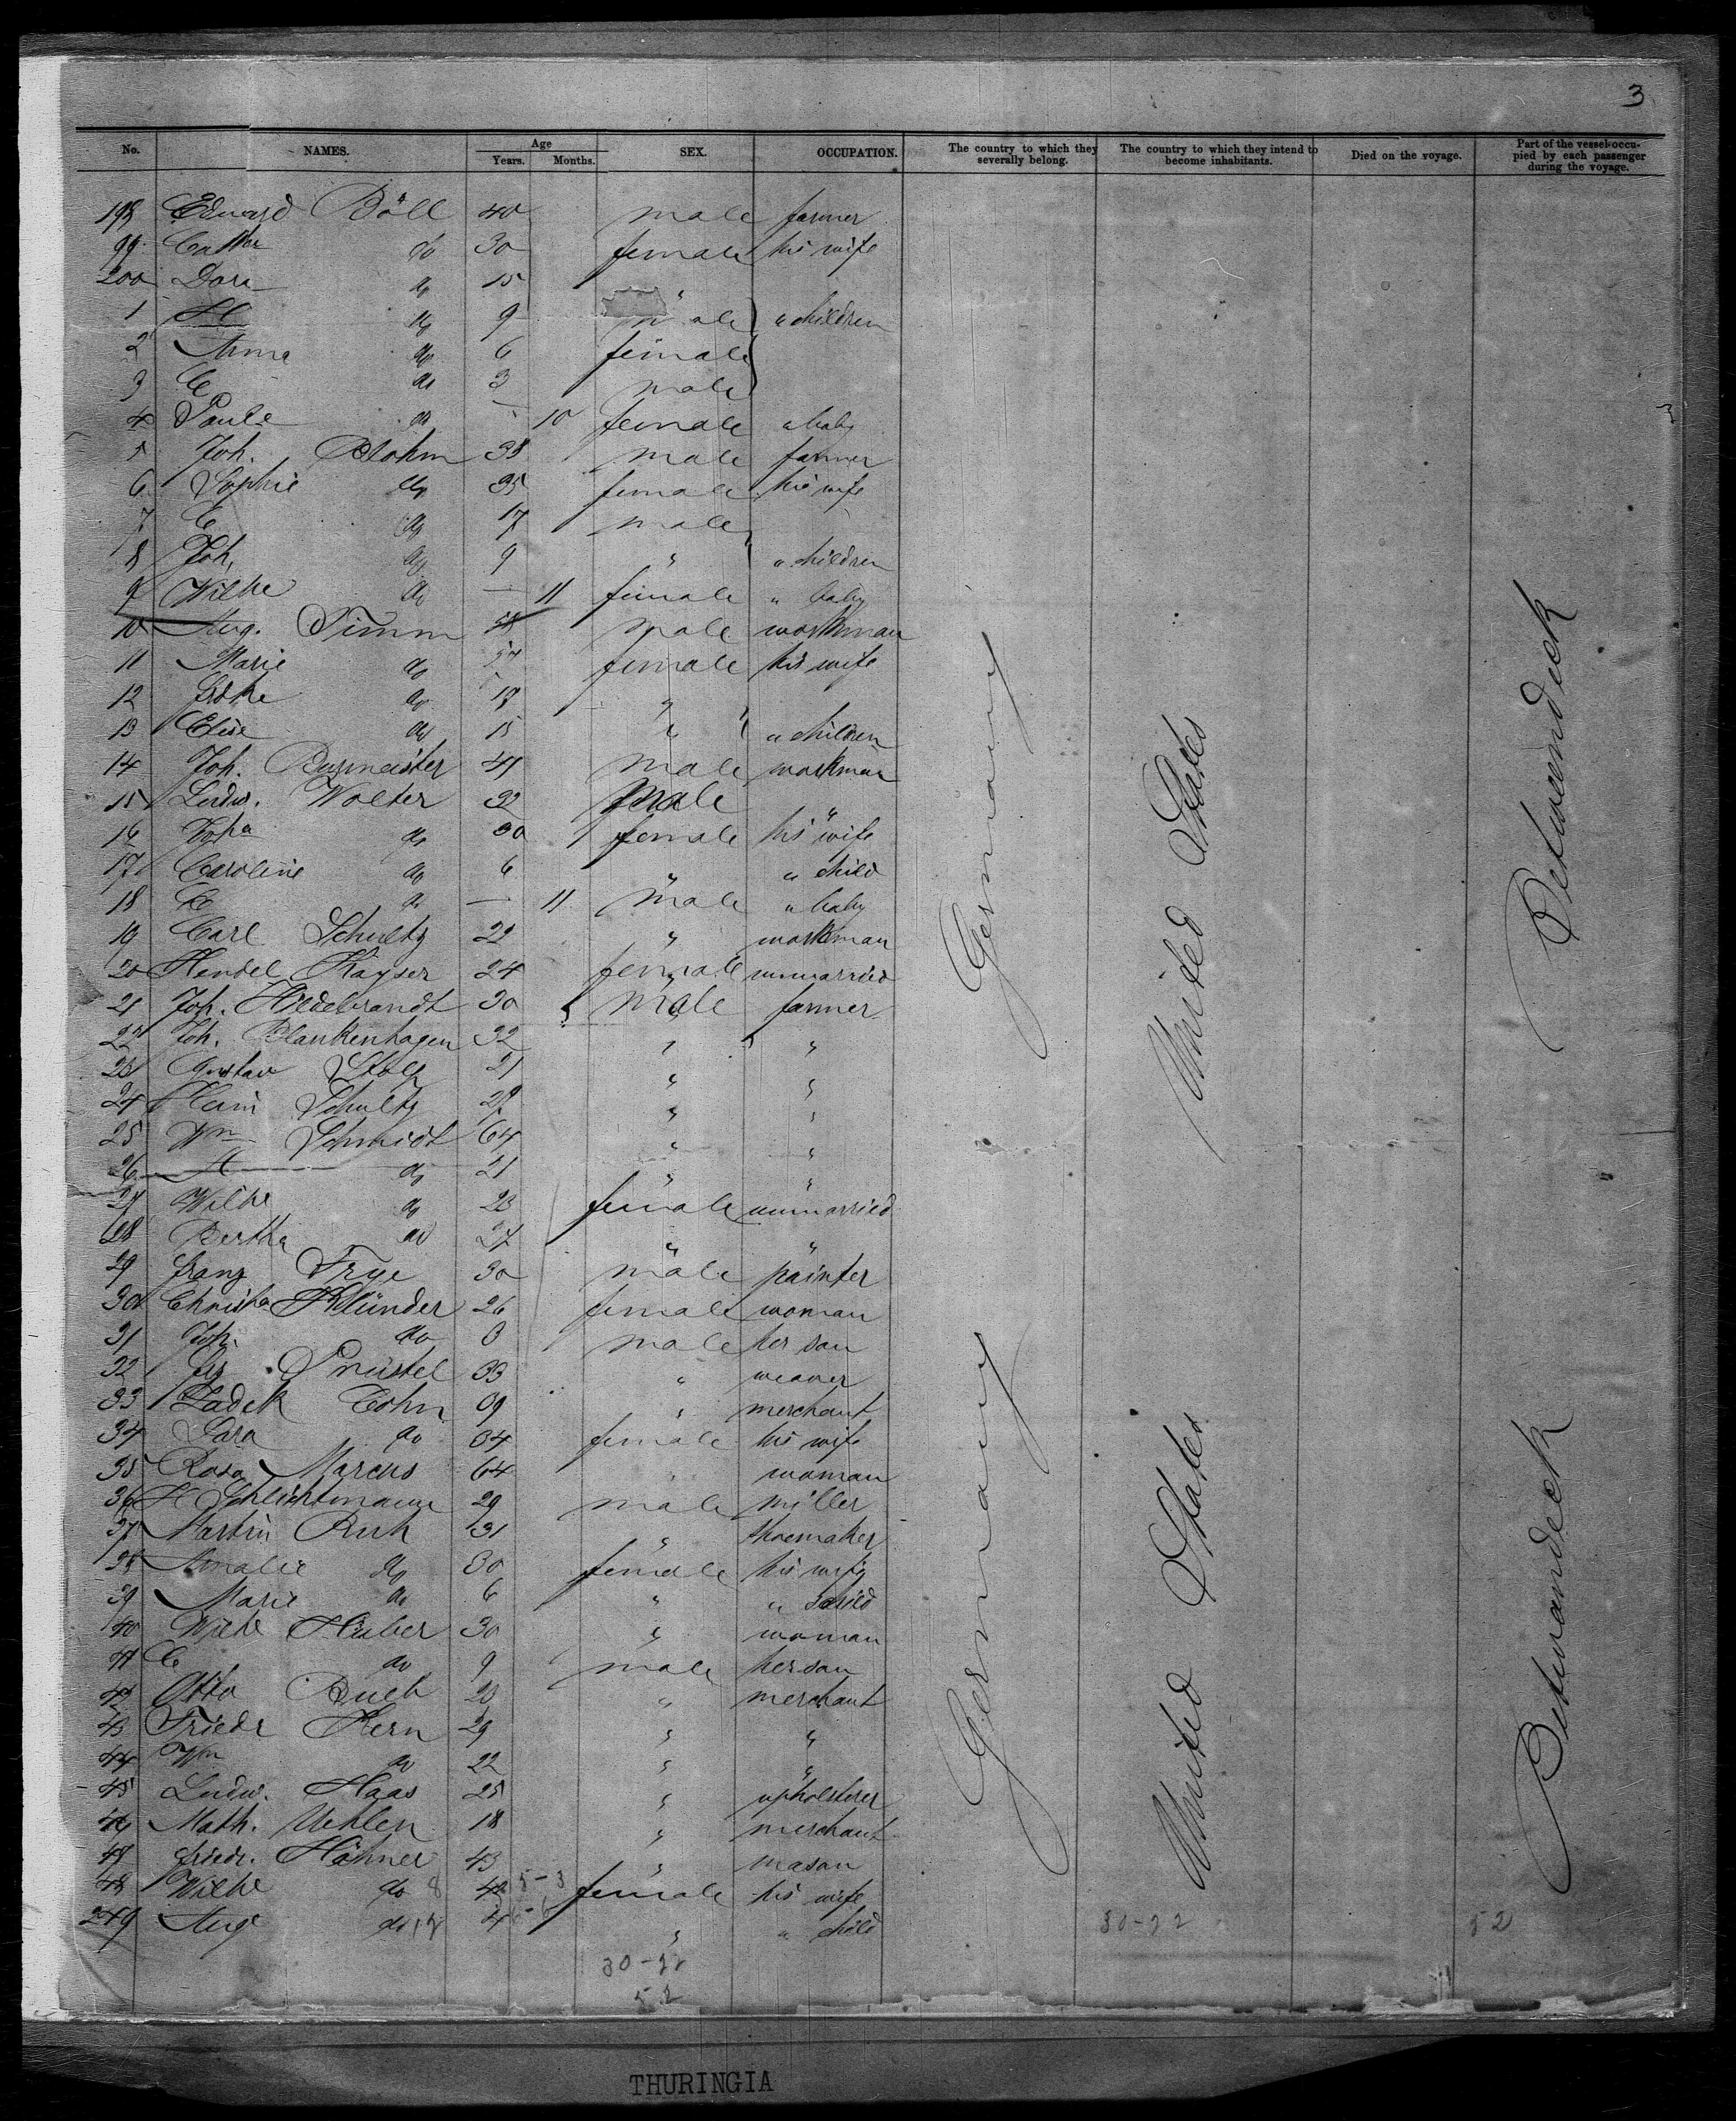 3
No. NAMES. Age Years. Months. SEX. OCCUPATION. The country to which they severally belong. The country to which they intend to become inhabitants. Died on the voyage. Part of the vessel occupied by each passenger during the voyage.
198 Edward Böll 40 male farmer
99 do 30 female his wife
200 Dora do 15 "
1 H do 9 male " children
2 Anna do 6 female
3 C do 3 male
4 Paule do — 10 female " baby
5 Joh. Blohm 38 male farmer
6 Sophie do 35 female his wife
7 C do 17 male
8 Joh. do 9 " " children
9 Wilhe do — 11 female " baby
10 Aug. Timm male workman
11 Marie do 57 female his wife
12 do "
13 Elise do 15 " " children
14 Joh. Burmeister 41 male workman
15 Ludw. Wolter 32 male "
16 Joha do 30 female his wife
17 Caroline do 6 " " child
18 C do — 11 male " baby
19 Carl Schultz 22 " workman
20 Hendel Kayser 24 female unmarried
21 Joh. Hildebrandt 30 male farmer
22 Joh. Blankenhagen 32 " "
23 Gustav 21 " "
24 Schultz " "
25 Wm Schmidt 64 " "
26 H do 21 "
27 Wilhe do 23 female unmarried
28 Bertha do " "
29 Franz Frye 30 male painter
30 Christa Klünder 26 female woman
31 Joh. do 3 male her son
32 33 " weaver
33 Zadek Cohn 39 " merchant
34 Sara do 34 female his wife
35 Rosa Marcus 64 " woman
36 H Schlichtmann 29 male miller
37 Martin 31 " shoemaker
38 Amalie do 30 female his wife
39 Marie do 6 " " child
40 Wilhe Huber 30 " woman
41 C do 9 male her son
42 Otto 20 " merchant
43 Friedr Kern 29 " "
44 Wm do 22 " "
45 Ludw. Haas 25 " upholsterer
46 Math. Uehlen 18 " merchant
47 Friedr. Höhner 43 " mason
48 Wilhe do 8 42 5-3 female his wife
249 Aug do 17 4 6-6 " " child
Germany
United States
Betweendeck
Germany
United States
Betweendeck
30-22
52
30-22
52
THURINGIA